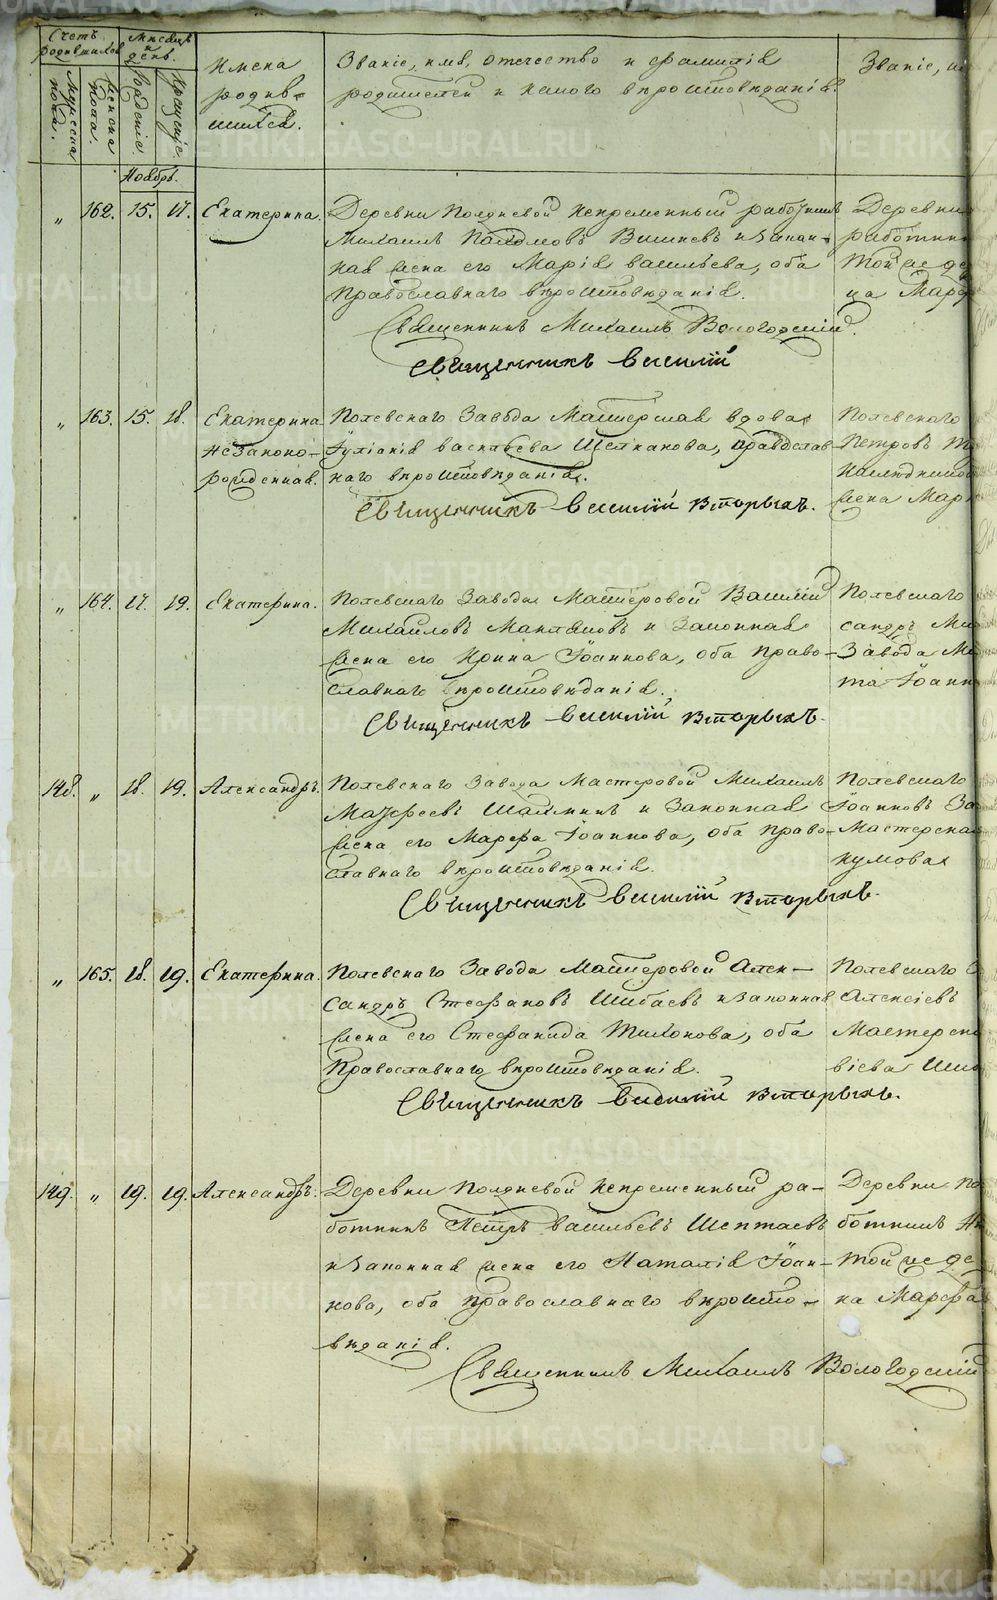 Счетъ родившихся
Мѣсяцъ и день.
Имена родившихся.
Званіе, имя, отчество и фамилія
родителей и какого вѣроисповѣданія.
Званіе, и
Мужеска пола.
Женска пола.
Рожденіе.
Крещеніе.
Ноябрь.
„ 162. 15. 17. Екатерина. Деревни Полдневой Непременный работникъ
Михаилъ Пахомовъ Вишневъ и Закон-
ная жена его Марія Васильева, оба
Православнаго вѣроисповѣданія.
Священникъ Михаилъ Вологодскій.
Священникъ Василій
Деревни
работни
той же де
ца Марѳ
„ 163. 15. 18. Екатерина
Незаконо-
рожденная.
Полевскаго Завода Мастерская вдова
Іуліанія Васильева Щелканова, Православ-
наго вѣроисповѣданія.
Священникъ Василій Вторыхъ.
Полевскаго
Петровъ
жена Мар
„ 164. 17. 19. Екатерина. Полевскаго Завода Мастеровой Василій
Михайловъ и Законная
жена его Ирина Іоаннова, оба Право-
славнаго вѣроисповѣданія.
Священникъ Василій Вторыхъ.
Полевскаго
сандръ Ми
Завода Ма
та Іоанн
148. „ 18. 19. Александръ. Полевскаго Завода Мастеровой Михаилъ
Матѳеевъ и Законная
жена его Марѳа Іоаннова, оба Право-
славнаго вѣроисповѣданія.
Священникъ Василій Вторыхъ.
Полевскаго
Іоанновъ За
Мастерская
кумова
„ 165. 18. 19. Екатерина. Полевскаго Завода Мастеровой Алек-
сандръ Стефановъ Шибаевъ и Законная
жена его Стефанида Тихонова, оба
Православнаго вѣроисповѣданія.
Священникъ Василій Вторыхъ.
Полевскаго
Алексіевъ
Мастерска
віева Ши
149. „ 19. 19. Александръ. Деревни Полдневой Непременный ра-
ботникъ Петръ Васильевъ Шептаевъ
и Законная жена его Наталія Іоан-
нова, оба Православнаго вѣроиспо-
вѣданія.
Священникъ Михаилъ Вологодскій
Деревни По
ботникъ
той же де
ка Марѳа
METRIKI.GASO-URAL.RU